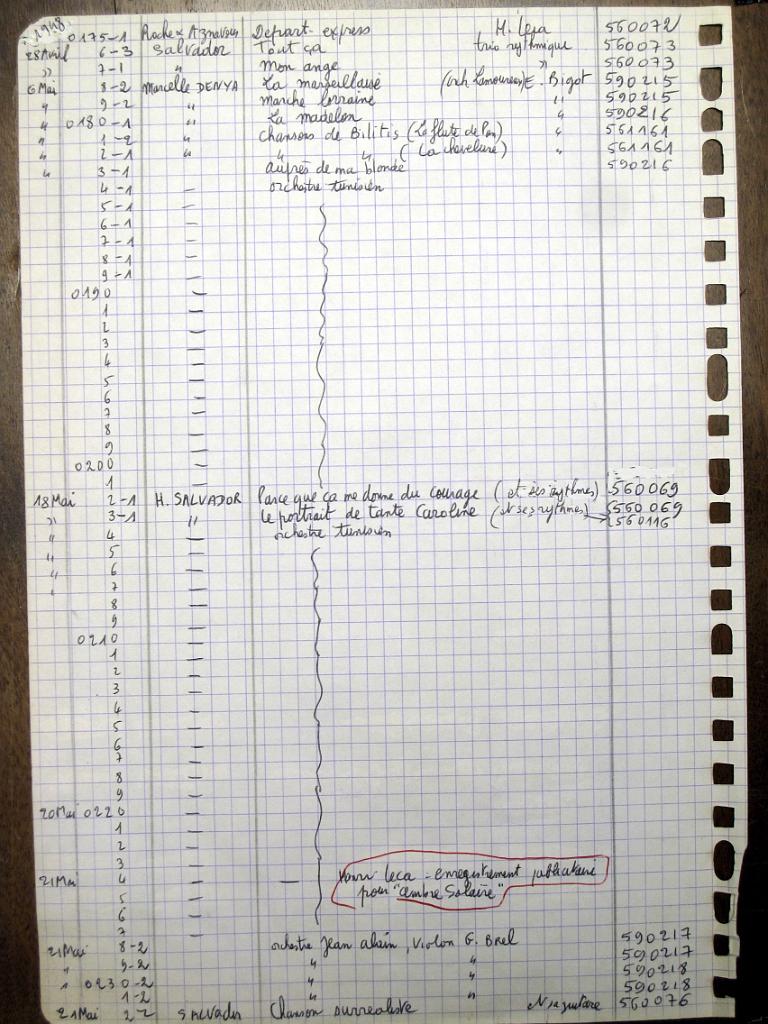 1948.
0175-1 Roche & Aznavour Depart-express H. Leca 560072
28 Avril 6-3 Salvador Tout ça trio rythmique 560073
" 7-1 " mon ange " 560073
6 Mai 8-2 Marcelle DENYA La marseillaise (orch Lamoureux) E. Bigot 590215
" 9-2 " marche lorraine " 590215
" 0180-1 " La madelon " 590216
" 1-2 " chansons de Bilitis (La flute de Pan) " 561161
" 2-1 " " " (La chevelure) " 561161
" 3-1 auprès de ma blonde 590216
4-1 — orchestre tunisien
5-1 —
6-1 —
7-1 —
8-1 —
9-1 —
0190 —
1 —
2 —
3 —
4 —
5 —
6 —
7 —
8 —
9 —
0200 —
1 —
18 Mai 2-1 H. SALVADOR Parce que ça me donne du courage (et ses rythmes) 560069
" 3-1 " le portrait de tante Caroline (et ses rythmes) 560069
560116
" 4 — orchestre tunisien
" 5 —
" 6 —
" 7 —
8 —
9 —
0210 —
1 —
2 —
3 —
4 —
5 —
6 —
7 —
8 —
9 —
20 Mai 0220 —
1 —
2 —
3
21 Mai 4 — Henri Leca - enregistrement publicitaire
5 pour "ambre Solaire"
6
7
21 Mai 8-2 orchestre Jean alain, Violon G. Brel 590217
" 9-2 " " 590217
" 0230-2 " " 590218
1-2 " " 590218
21 Mai 2-2 Salvador Chanson surrealiste 560076